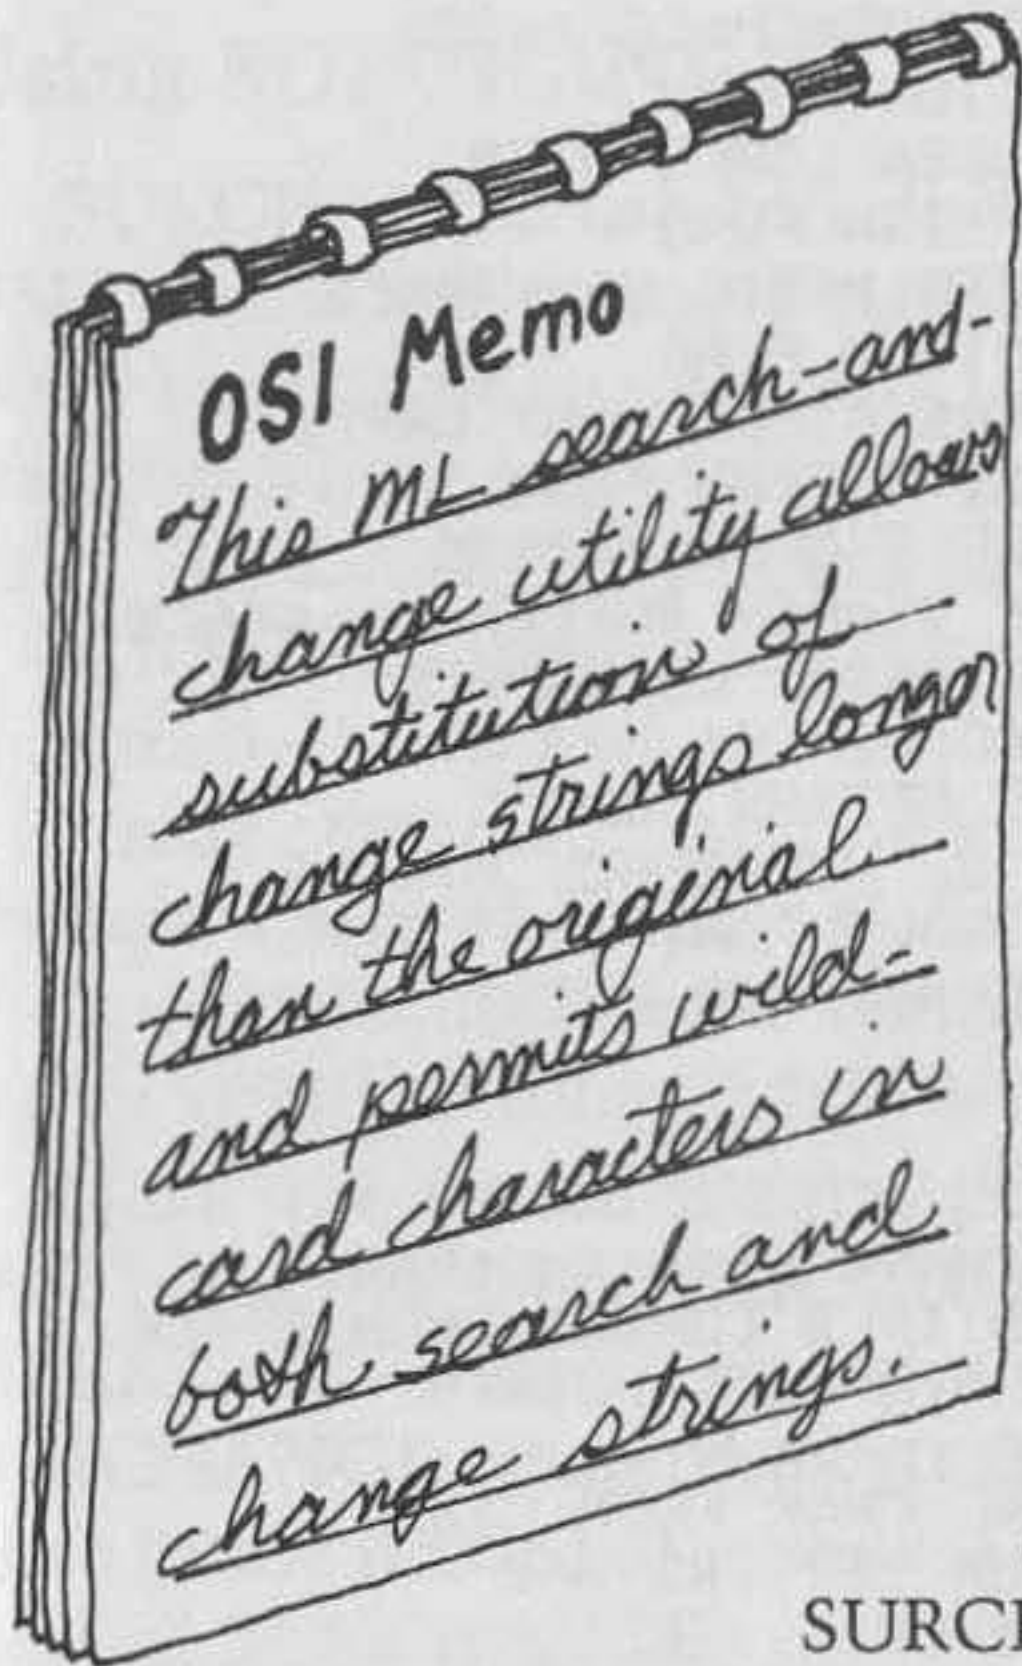 OSI Memo
This ML search-and-
change utility allows
substitution of
change strings longer
than the original
and permits wild-
card characters in
both search and
change strings.
SURCH